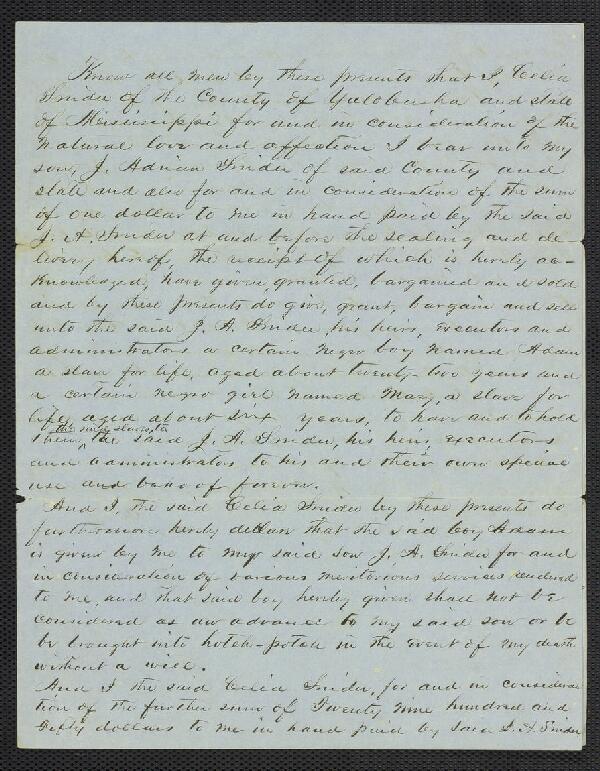 Know all men by these presents that I, Celia
Snider of the County of Yalobusha and state
of Mississippi for and in consideration of the
natural love and affection I bear unto my
son, J. Adrian Snider of said County and
state and also for and in consideration of the sum
of one dollar to me in hand paid by the said
J. A. Snider at and before the sealing and de-
livery hereof, the receipt of which is hereby ac-
knowledged, have given, granted, bargained and sold
and by these presents do give, grant, bargain and sell
unto the said J. A. Snider, his heirs, executors and
administrators a certain negro boy named Adam
a slave for life, aged about twenty-two years and
a certain negro girl named Mary, a slave for
life aged about six years, to have and to hold
the said slaves, to
them, the said J. A. Snider, his heirs, executors
and administrators to his and their own special
use and behoof forever.
And I, the said Celia Snider by these presents do
furthermore hereby declare that the said boy Adam
is given by me to my said son J. A. Snider for and
in consideration of various meritorious services rendered
to me, and that said boy hereby given shall not be
considered as an advance to my said son or to
be brought into hotch-potch in the event of my death
without a will.
And I the said Celia Snider, for and in considera-
tion of the further sum of Twenty nine hundred and
Fifty dollars to me in hand paid by said J. A. Snider